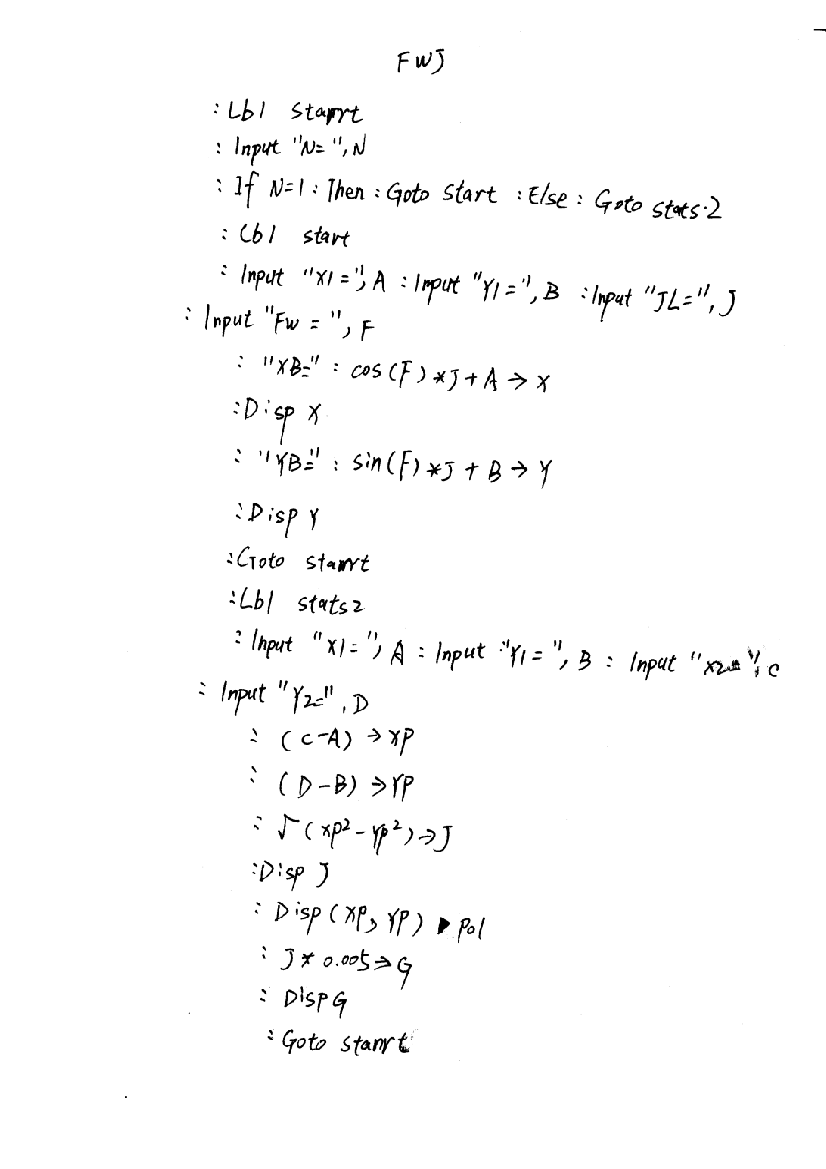 FWJ
:Lbl stanrt
:Input "N=",N
:If N=1:Then:Goto start :Else:Goto stats2
:Lbl start
:Input "X1=",A :Input "Y1=",B :Input "JL=",J
:Input "FW=",F
:"XB=":cos(F)*J+A→X
:Disp X
:"YB=":sin(F)*J+B→Y
:Disp Y
:Goto stanrt
:Lbl stats2
:Input "X1=",A :Input "Y1=",B :Input "X2=",C
:Input "Y2=",D
:(C-A)→XP
:(D-B)→YP
:√(XP²-YP²)→J
:Disp J
:Disp(XP,YP)►Pol
:J*0.005→G
:Disp G
:Goto stanrt